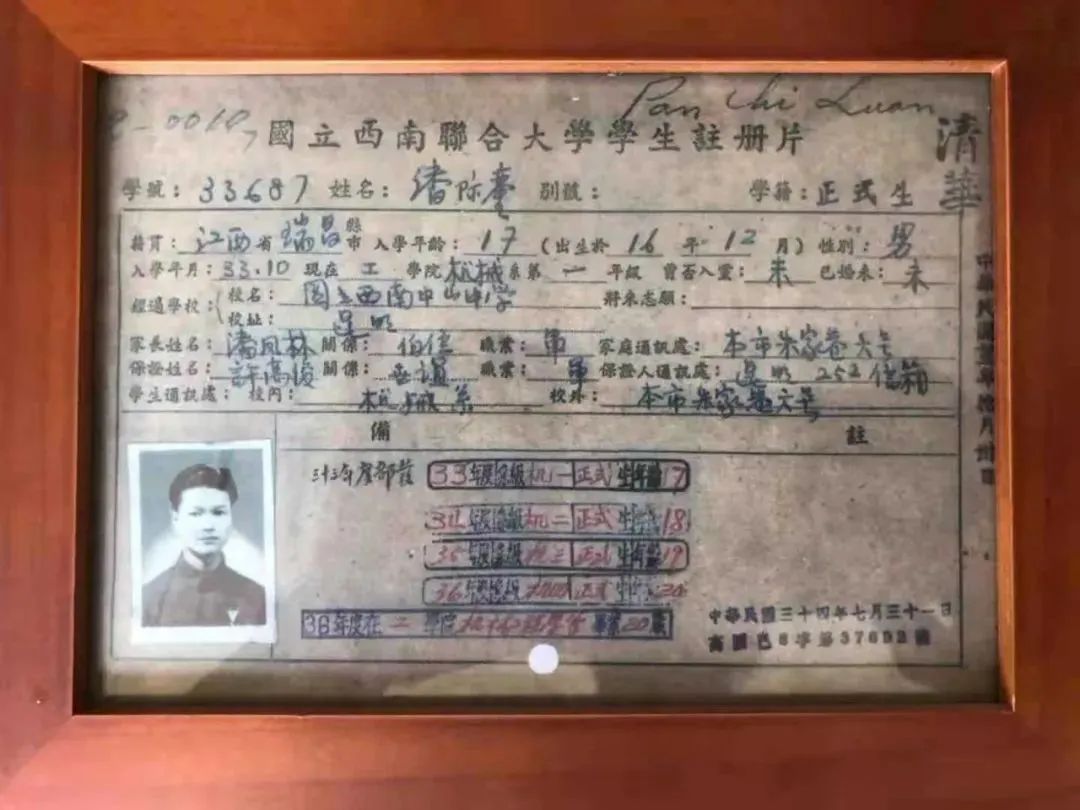 Pan Chi Luan
國立西南聯合大學學生註册片
清華
學號：33687 姓名：潘際鑾 別號： 學籍：正式生
籍貫：江西省瑞昌縣市 入學年齡：17 (出生於 16 年 12 月) 性別：男
入學年月：33.10 現在 工 學院 机械 系第 一 年級 曾否入黨：未 已婚未：未
經過學校：(校名：国立西南中山中学 將來志願：
校址：昆明
家長姓名：潘凤林 關係：伯侄 職業：軍 家庭通訊處：本市朱家巷六号
保證姓名：許高俊 關係： 職業：軍 保證人通訊處：昆明252信箱
學生通訊處：校內：机械系 校外：本市朱家巷六号
備 註
33年度 級机一正式生年齡17
34年度 級机二正式生 18
35年度 級机三正式生年齡19
36年度 級机四正式生 20
36年度在工學院机械 畢業20歲
中華民國三十四年七月三十一日